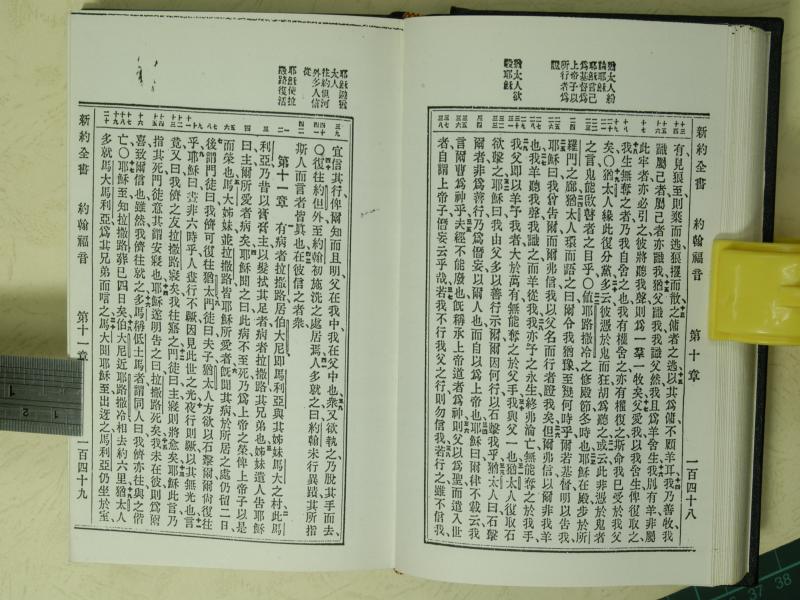 新約全書 約翰福音 第十章 一百四十八
有見狼至則棄而逃狼攫而散之傭者之逃以其為傭不顧羊耳我乃善牧我
識屬己者屬己者亦識我猶父識我我識父然我且為羊舍生我別有羊非屬
此牢者亦必引之彼將聽我聲則為一羣一牧矣父愛我以我舍生俾復取之
我生無奪之者乃我自舍之也我有權舍之亦有權復之斯命我已受於我父
矣〇猶太人緣此復分黨多云彼憑於鬼而狂胡為聽之或云此非憑於鬼者
之言鬼能啟瞽者之目乎〇值耶路撒冷之修殿節冬時也耶穌在殿步於所
羅門之廊猶太人環而語之曰爾令我猶豫至幾何時乎爾若基督明以告我
耶穌曰我曾告爾而爾弗信我以父名而行者證我矣但爾弗信以爾非我羊
也我羊聽我聲我識之而羊從我我亦予之永生終弗淪亡無能奪之於我手
我父即以羊予我者大於萬有無能奪之於父手我與父一也猶太人復取石
欲擊之耶穌曰我由父多以善行示爾爾因何行以石擊我乎猶太人曰石擊
爾者非為善行乃為僭妄以爾人也而自以為上帝也耶穌曰爾律不載云我
言爾曹為神乎夫經不能廢也既稱承上帝道者為神則父以為聖而遣入世
者自謂上帝子僭妄云乎哉若我不行我父之行則勿信我若行之雖不信我
猶太人欲
殺耶穌
耶穌避敵
大人
往約但河
外多人信
從
耶穌使拉
撒路復活
宜信其行俾爾知而且明父在我中我在父中也衆又欲執之乃脫其手而去
〇復往約但外至約翰初施洗之處居焉人多就之曰約翰未行異蹟其所指
斯人而言者皆真也在彼信之者衆
第十一章 有病者拉撒路居伯大尼即馬利亞與其姊馬大之村此馬
利亞乃昔以膏膏主以髮拭其足者病者拉撒路其兄弟也姊妹遣人告耶穌
曰主所愛者病矣耶穌聞之曰此病不至死乃為上帝之榮俾上帝子以是
而榮也馬大姊妹並拉撒路皆耶穌所愛者既聞其病於所居之處仍留二日
後謂門徒曰我儕可復往猶太門徒曰夫子猶太人方欲以石擊爾爾尚復往
乎耶穌曰晝非六時乎人晝行不蹶因見此世之光夜行則蹶以其無光也言
竟又曰我儕之友拉撒路寢矣我往寤之門徒曰主寢則將愈矣耶穌此言乃
指其死門徒意其謂安寢也耶穌遂明告之曰拉撒路死矣我未在彼則為爾
喜致爾信也雖然我儕往就之多馬稱低土馬者謂同人曰我儕亦往與之偕
亡〇耶穌至知拉撒路葬已四日矣伯大尼近耶路撒冷相去約六里猶太人
多就馬大馬利亞為其兄弟而唁之馬大聞耶穌至出迓之馬利亞仍坐於室
新約全書 約翰福音 第十一章 一百四十九